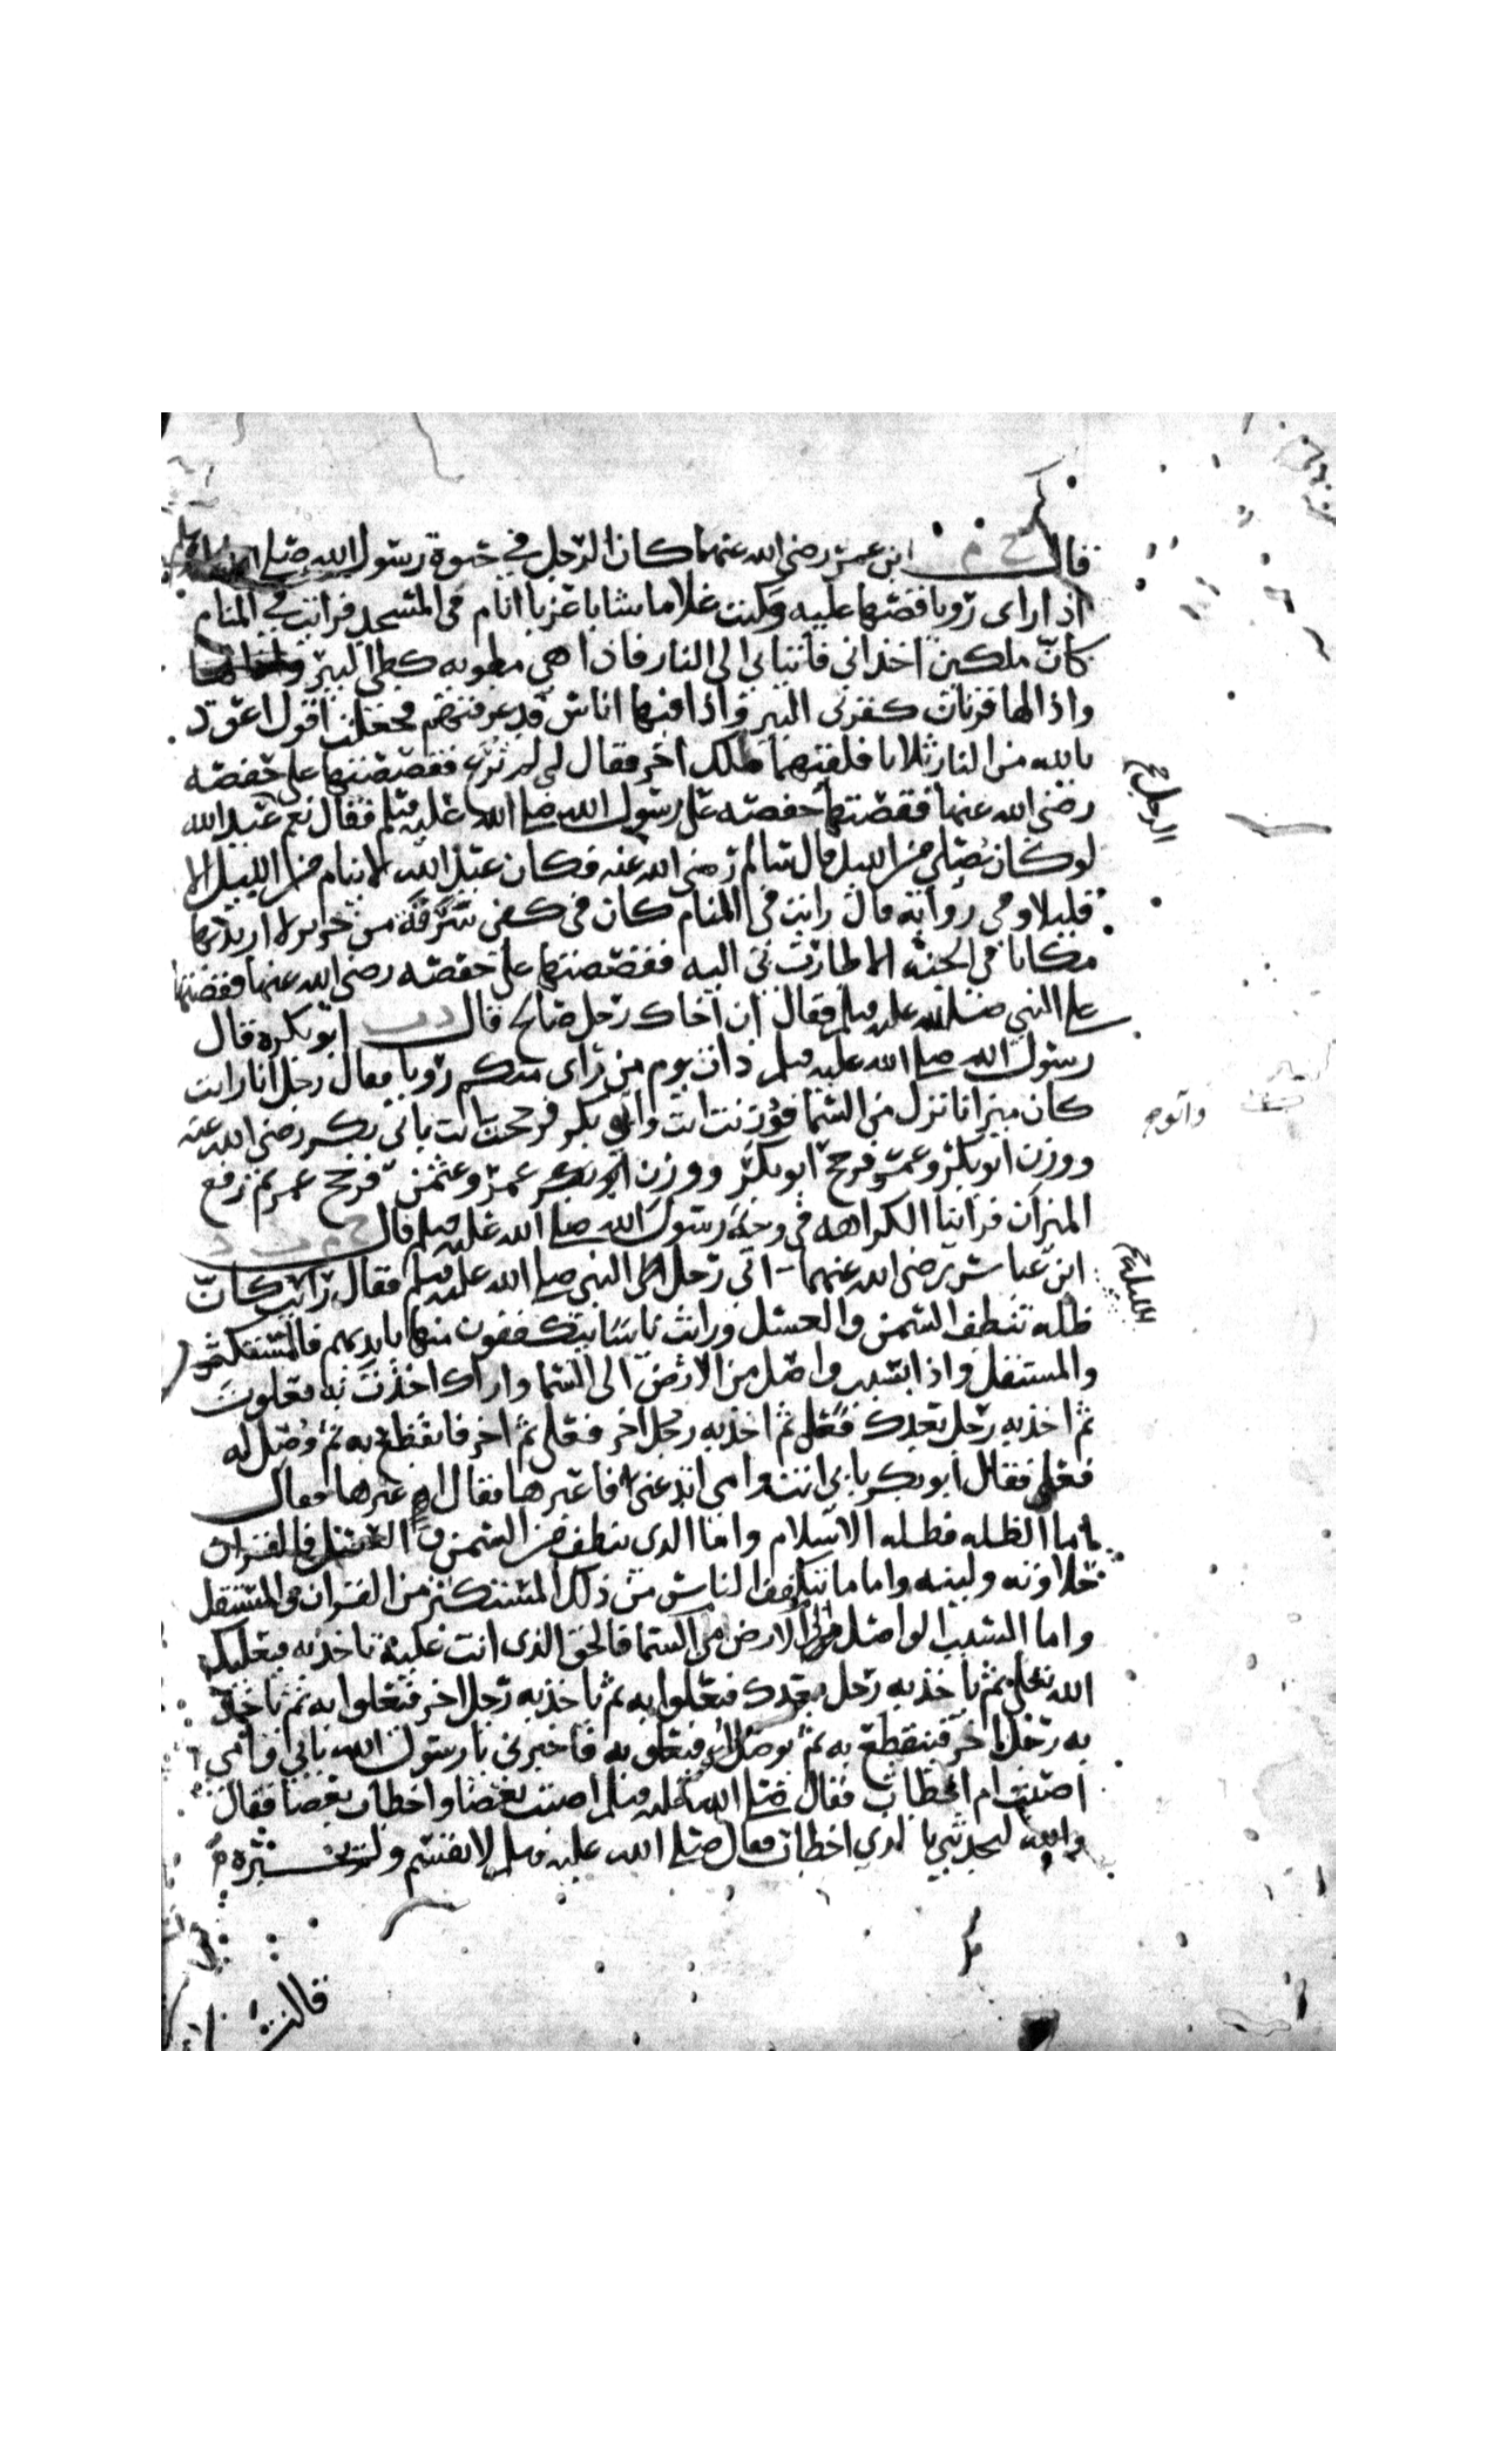 قال خ م ابن عمر رضي الله عنهما كان الرجل في حيوة رسول الله صلى الله
اذا راى رويا قصها عليه وكنت غلاما شابا عزبا انام في المسجد فرايت في المنام
كان ملكين اخذاني فاتيا بي الى النار فاذا هي مطويه كطي البير
واذا لها قرنان كقرني البير واذا فيها اناس قد عرفتهم فجعلت اقول اعوذ
بالله من النار ثلاثا فلقيهما ملك اخر فقال لي لم ترع فقصصتها على حفصه
رضي الله عنها فقصتها حفصه على رسول الله صلى الله عليه وسلم فقال نعم عبد الله
لو كان يصلي من الليل قال سالم رضي الله عنه فكان عبد الله لا ينام من الليل الا
قليلا وفي روايه قال رايت في المنام كان في كفي سرقة من حرير لا اريد بها
مكانا في الجنه الا طارت بي اليه فقصصتها على حفصه رضي الله عنها فقصتها
على النبي صلى الله عليه وسلم فقال ان اخاك رجل صالح قال د ت ابو بكره قال
رسول الله صلى الله عليه وسلم ذات يوم من راى منكم رويا فقال رجل انا رايت
كان ميزانا نزل من السما فوزنت انت وابي بكر فرجحت انت بابي بكر رضي الله عنه
ووزن ابو بكر وعمر فرجح ابو بكر ووزن عمر وعثمن فرجح عمر ثم رفع
الميزان فراينا الكراهه في وجه رسول الله صلى الله عليه وسلم قال خ م ت د
ابن عباس رضي الله عنهما اتى رجل الى النبي صلى الله عليه وسلم فقال رايت كان
ظله تنطف السمن والعسل ورايت ناسا يتكففون منها بايديهم فالمستكثر
والمستقل واذا بسبب واصل من الارض الى السما واراك اخذت به فعلوت
ثم اخذ به رجل بعدك فعلى ثم اخذ به رجل اخر فعلى ثم اخر فانقطع به ثم وصل له
فعلى فقال ابو بكر بابي انت وامي اتدعني فاعبرها فقال عبرها فقال
اما الظله فظله الاسلام واما الذي ينطف من السمن والعسل فالقران
حلاوته ولينه واما ما يتكفف الناس من ذلك المستكثر من القران والمستقل
واما السبب الواصل الى الارض من السما فالحق الذي انت عليه تاخذ به فيعليك
الله تعالى ثم ياخذ به رجل بعدك فيعلوا به ثم ياخذ به رجل اخر فيعلوا به ثم ياخذ
به رجل اخر فينقطع به ثم يوصل له فيعلو به فاخبرني يا رسول الله بابي وامي
اصبت ام اخطات فقال صلى الله عليه وسلم اصبت بعضا واخطات بعضا فقال
والله لتحدثني بالذي اخطات فقال صلى الله عليه وسلم لا تقسم
قالت